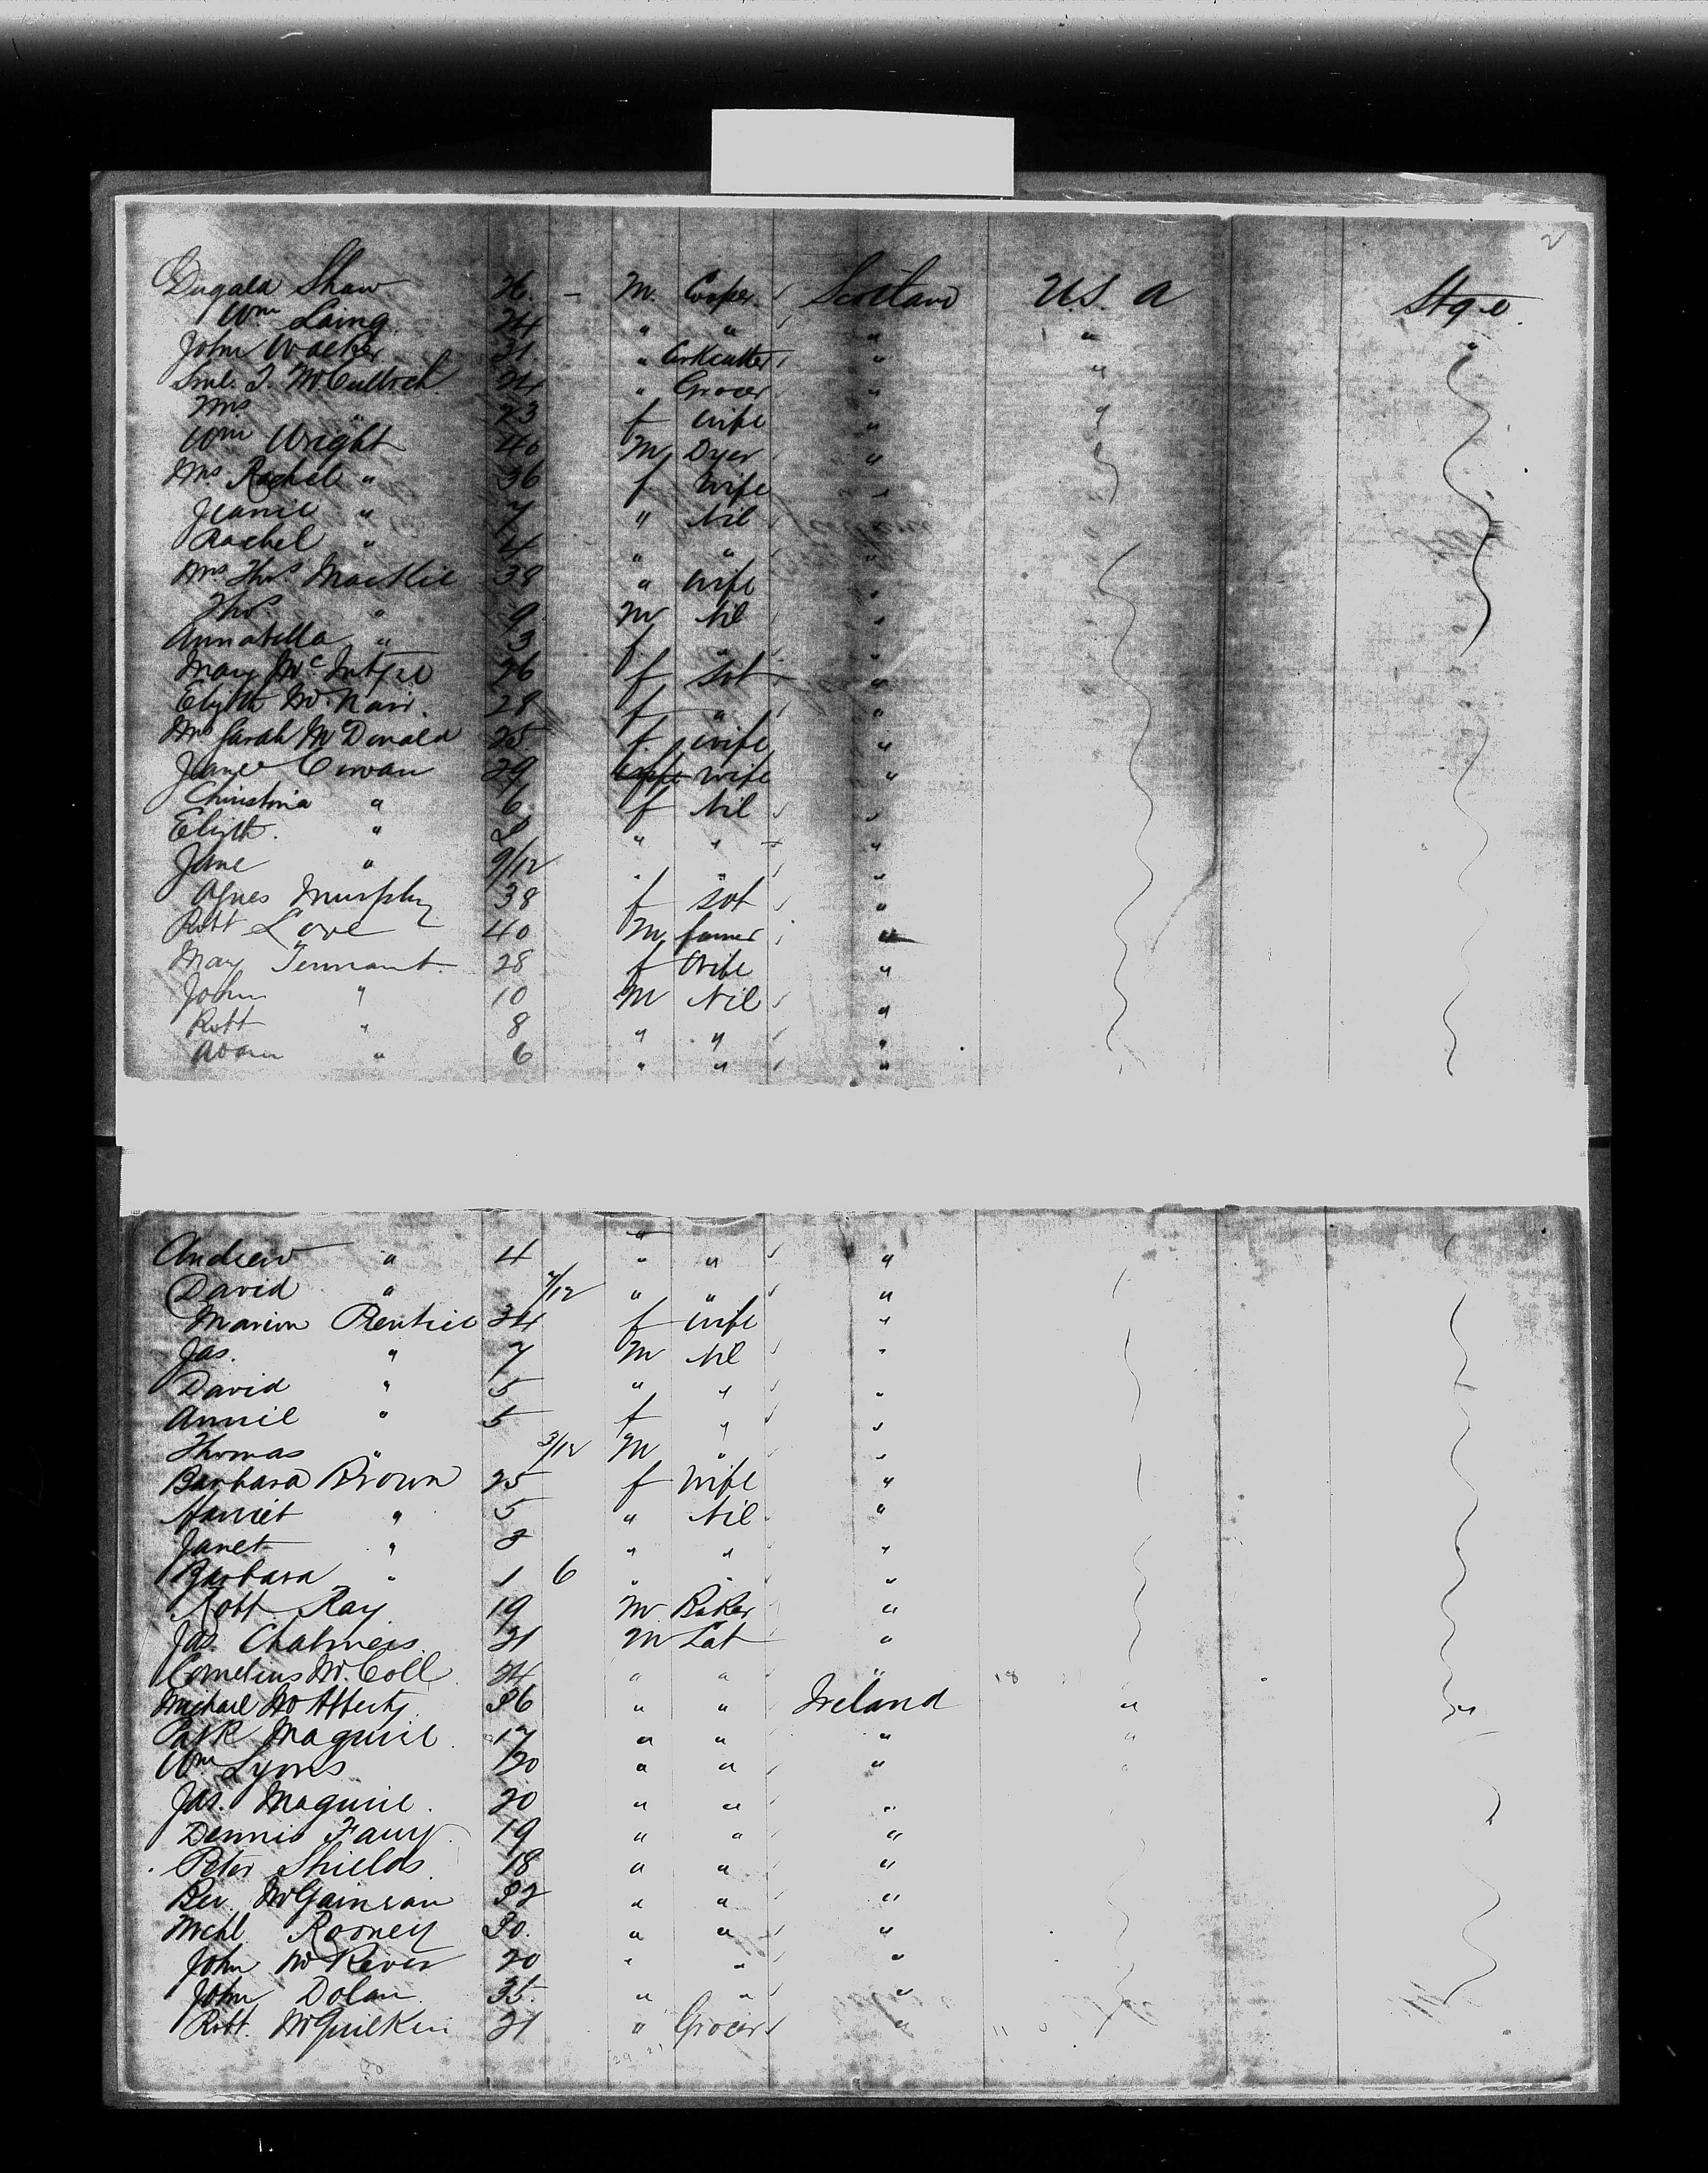 2
Dugald Shaw 26. – M. Cooper Scotland U.S. A Stge.
Wm Laing 24 " " " " "
John Walker 21. " Corkcutter " "
Saml. T. McCulloch 24 " Grocer "
Mrs " 23 f Wife " "
Wm Wright 40 M Dyer "
Mrs Rachel " 36 f Wife "
Jeanie " 7 " Nil
Rachel " 4 " " "
Mrs Thos. Mackie 38 " Wife "
Thos. " 9 M Nil "
Annabella " 3 f " "
Mary McIntyre 26 f Svt "
Elizth McNair. 28 f " "
Mrs Sarah McDonald 25 f. wife "
Jane Cowan 29 wife "
Christina " 6 f Nil "
Elizth. " 2 " " "
Jane " 9/12 " " "
Agnes Murphy 38 f Svt "
Robt Love 40 M farmer "
Mary Tennant. 28 f Wife "
John " 10 M Nil "
Robt " 8 " " "
Adam " 6 " " "
Andrew " 4 " " "
David " 7/12 " " "
Marion Prentice 34 f wife "
Jas. " 7 M Nil "
David " 5 " " "
Annie " 5 f " "
Thomas " 3/12 M " "
Barbara Brown 25 f Wife "
Harriet " 5 " Nil "
Janet " 3 " " "
Barbara " 1 6 " " "
Robt Ray 19 M Baker "
Jas. Chalmers 21 M Lab "
Cornelius McColl 24 " " "
Michael 26 " " Ireland " "
Patk Maguire 17 " " " "
Wm Lyons 20 " " " "
Jas. Maguire. 20 " " "
Dennis 19 " " "
Peter Shields 18 " " "
McGainran 22 " " "
Michl Rooney 30. " " "
John 20 " " "
John Dolan. 35. " " "
Robt. McGuilken 21 " Grocer "